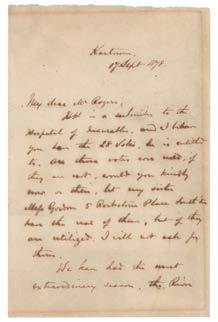 Kartoum
17 Sept 1878.
My dear Mr Rogers,
H.H. is a subscriber to the
Hospital of Incurables, and I believe
you have the 28 Votes, he is entitled
to, are those votes used, if
they are not, would you kindly
now or then, let my sister
Miss Gordon 5 Rockstone Place South ton
have the use of them, but if they
are utilized I will not ask for
them.
We have had the most
extraordinary season, the River